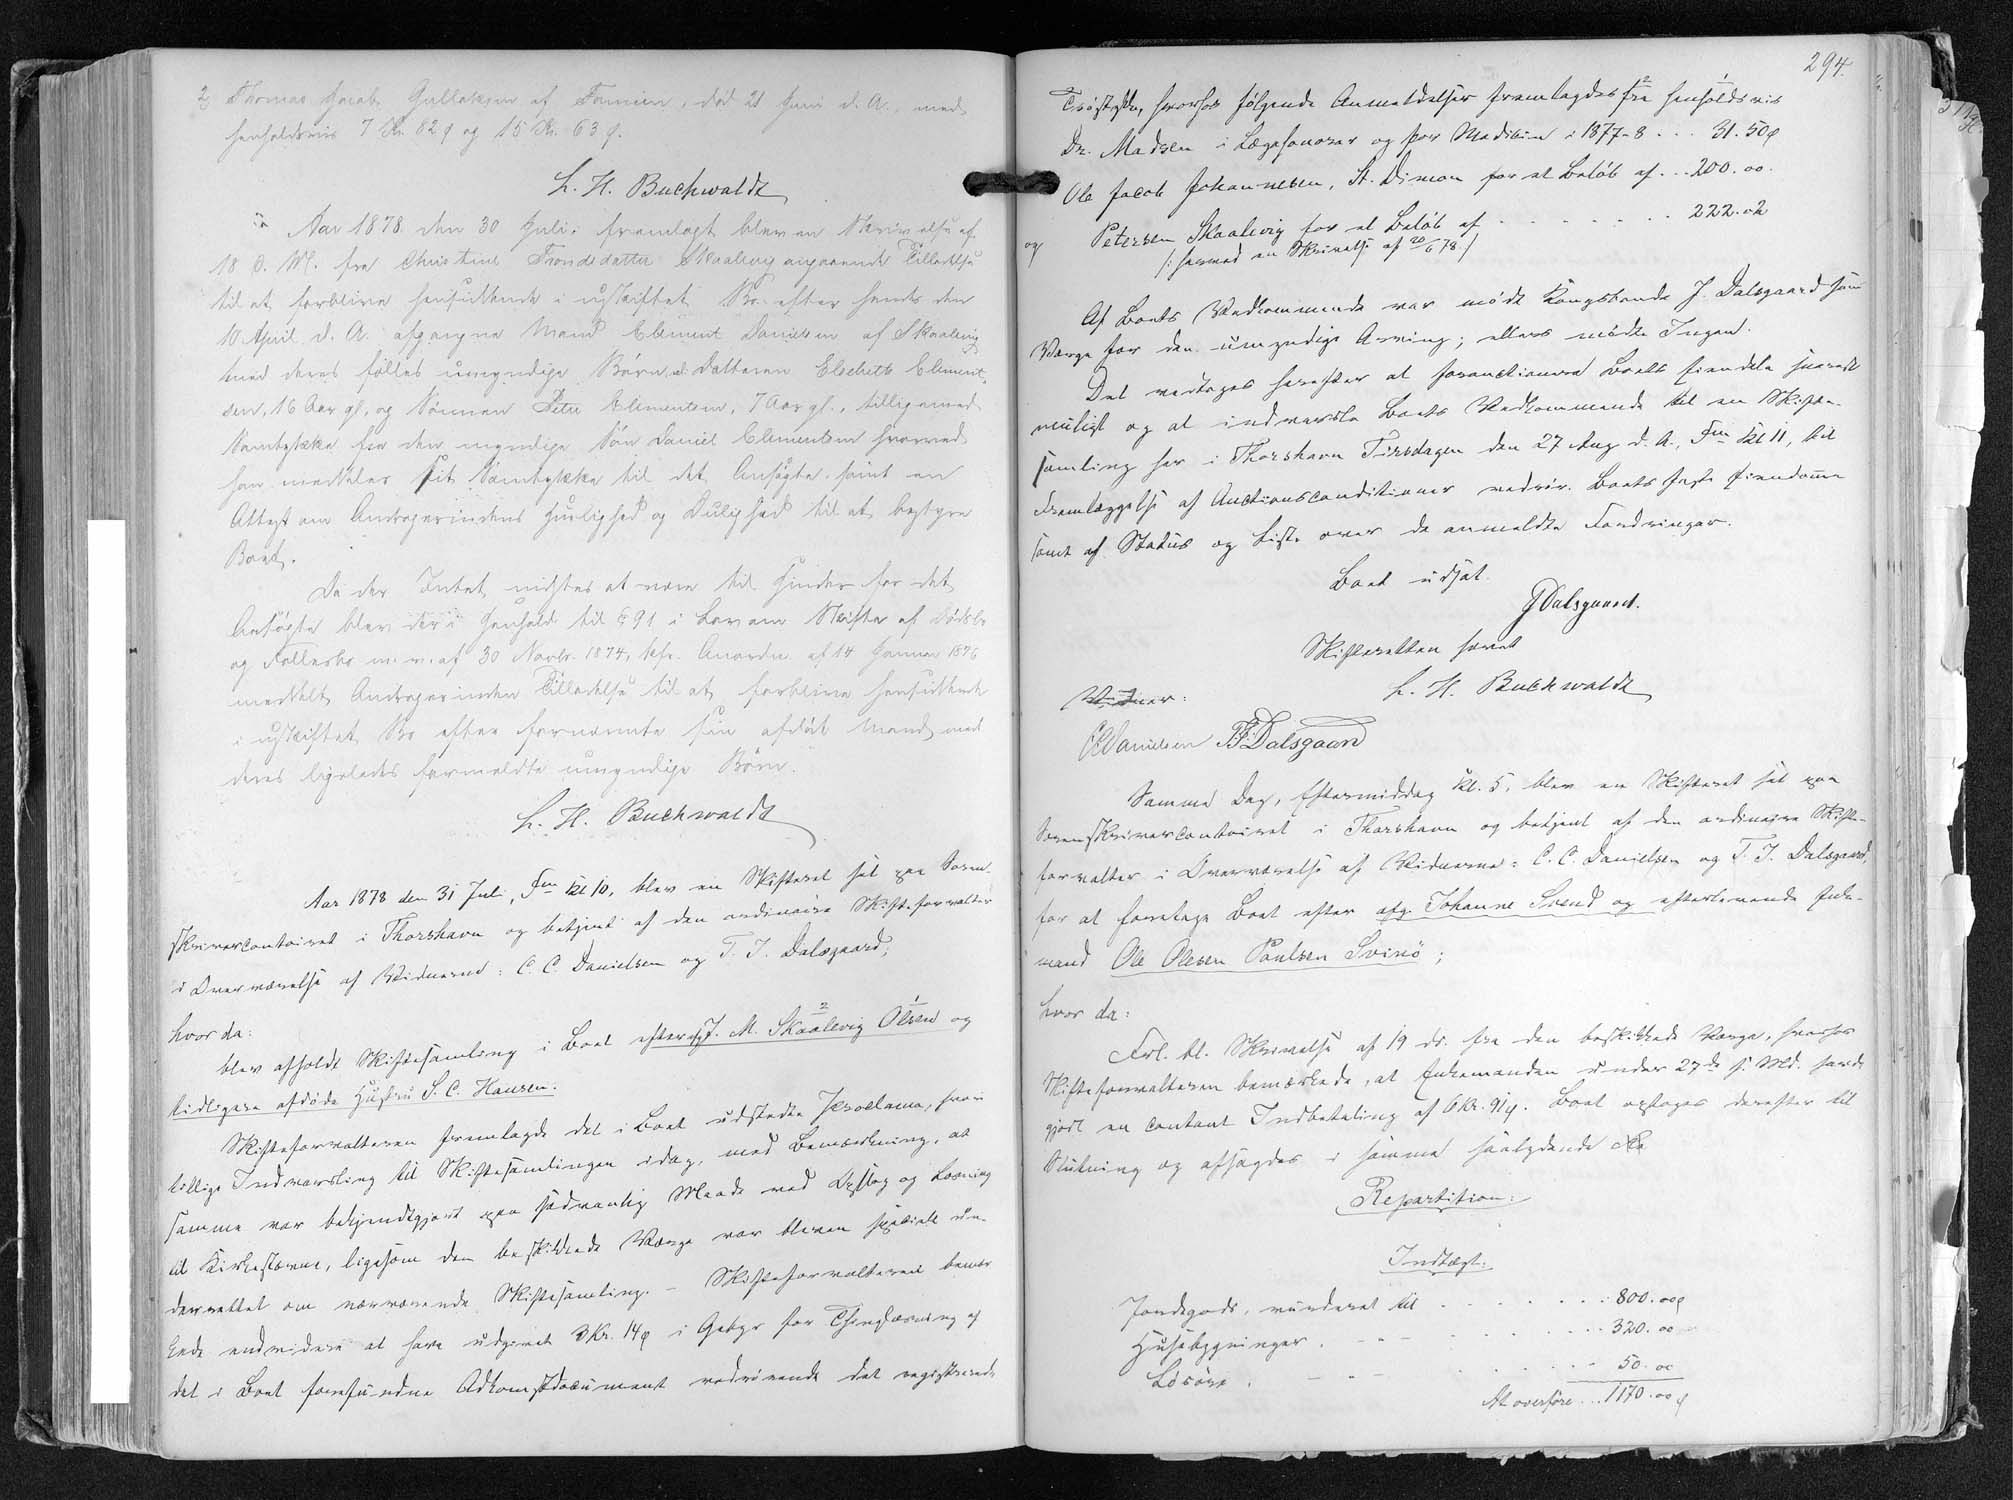 2, Thomas Jacob Gullaksen af Famien, död 21 Juni d. A. med
henholdsvis 7 Kr. 82 ø og 15 Kr. 63 ø.
L. H. Buchwaldt
Aar 1878 den 30 Juli, fremlagt blev en Skrivelse af
18 d. M. fra Christine Trondsdatter Skaalevig angaaende Tilladelse
til at forblive hensiddende i uskiftet Bo efter hendes den
10 April d. A. afgangne Mand Clement Danielsen af Skaalevig
med deres fælles umyndige Börn: Datteren Elsebeth Clement-
sen, 16 Aar gl, og Sönnen Peter Clementsen, 7 Aar gl., tilligemed
Samtykke fra den myndige Sön Daniel Clementsen hvorved
han meddeler sit Samtykke til det Ansögte samt en
Attest om Andragerindens Huslighed og Duelighed til at bestyre
Boet.
Da der Intet vidstes at være til Hinder for det
Ansögte blev der i Henhold til § 91 i Lov om Skifte af Dödsbo
og Fællesbo m. v. af 30 Novbr. 1874, kfr. Anordn. af 14 Januar 1876
meddelt Andragerinden Tilladelse til at forblive hensiddende
i uskiftet Bo efter fornævnte sin afdöde Mand med
deres ligeledes formeldte umyndige Börn.
L. H. Buchwaldt
Aar 1878 den 31 Juli, Fm Kl 10, blev en Skifteret sat paa Soren-
skrivercontoiret i Thorshavn og betjent af den ordinaire Skifteforvalter
i Overværelse af Vidnerne: C. C. Danielsen og T. J. Dalsgaard;
hvor da:
blev afholdt Skiftesamling i Boet efter afg. J. M. Skaalevig Olsen og
tidligere afdöde Hustru S. C. Hansen.
Skifteforvalteren fremlagde det i Boet udstedte Proclama, hvori
tillige Indvarsling til Skiftesamlingen idag, med Bemærkning, at
samme var bekjendtgjort paa sædvanlig Maade ved Opslag og Læsning
til Kirkestævne, ligesom den beskikkede Værge var bleven specielt un-
derrettet om nærværende Skiftesamling. – Skifteforvalteren bemær-
kede endvidere at have udgivet 3 Kr. 14 ø i Gebyr for Thinglæsning af
det i Boet forefundne Adkomstdocument vedrörende det registrerede
294.
Tröstgde, hvorhos fölgende Anmeldelser fremlagdes fra henholdsvis
Dr. Madsen i Lægehonorar og for Medicin i 1877-8 ... 31. 50 ø
Ole Jacob Johannesen, St. Dimon for et Belöb af ... 200. 00.
og Petersen Skaalevig for et Belöb af ........ 222. 02
/: hermed en Skrivelse af 20/6 78 :/
Af Boets Vedkommende var mödt Kongsbonde J. Dalsgaard som
Værge for den umyndige Arving; ellers mödte Ingen.
Det vedtages herefter at foranctionere Boets Eiendele snarest
muligt og at indvarsle Boets Vedkommende til en Skifte-
samling her i Thorshavn Tirsdagen den 27 Aug d. A., Fm Kl 11, til
Fremlæggelse af Auctionsconditioner vedrör. Boets faste Eiendomme
samt af Status og Liste over de anmeldte Fordringer.
Boet udsat.
J Dalsgaard.
Skifteretten hævet
L. H. Buchwaldt
Vidner:
CC Danielsen T J Dalsgaard
Samme Dag, Eftermiddag Kl. 5, blev en Skifteret sat paa
Sorenskrivercontoiret i Thorshavn og betjent af den ordinaire Skifte-
forvalter i Overværelse af Vidnerne: C. C. Danielsen og T. J. Dalsgaard,
for at foretage Boet efter afg. Johanne Svend og efterlevende Enke-
mand Ole Olesen Poulsen Svinö;
hvor da:
Frl. bl. Skrivelse af 19 ds. fra den beskikkede Værge, hvorhos
Skifteforvalteren bemærkede, at Enkemanden under 27de f. Md. havde
gjort en contant Indbetaling af 6 Kr. 91 ø. Boet optoges derefter til
Slutning og afsagdes i samme saalydende
Repartition:
Indtægt:
Jordegods, vurderet til ....... 800. 00 ø
Husebygninger . - - - ..... 320. 00
Lösöre . - - - ..... 50. 00
At overföre ... 1170. 00 ø